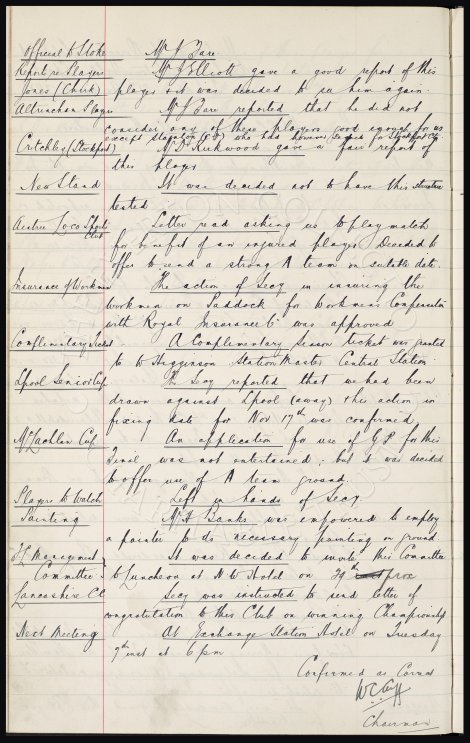 Official to Stoke Mr J Bare
Report re Players Mr J Elliott gave a good report of this
Jones (Chirk) player & it was decided to see him again.
Altrincham Player Mr J Bare reported that he did not
consider any of these players good enough for us
except who has however for Stockport Co
Critchley (Stockport) Mr D. Kirkwood gave a fair report of
this player
New Stand It was decided not to have this structure
tested
Aintree Loco Sports Club Letter read asking us to play match
for benefit of an injured player Decided to
offer to send a strong A team on suitable date.
Insurance of Workmen The action of Secy in insuring the
workmen on Paddock for Workmens Compensation
with Royal Insurance Co was approved
Complimentary Ticket A Complimentary season ticket was granted
to W Higginson Station Master Central Station.
Lpool Senior Cup The Secy reported that we had been
drawn against Lpool (away) & the action in
fixing date for Nov 17th was confirmed
McLachlan Cup An application for use of G.P. for this
Final was not entertained; but it was decided
to offer use of A team ground.
Players to Watch Left in hands of Secy.
Painting Mr H Banks was empowered to employ
a painter to do necessary painting on ground.
F L Management It was decided to invite this Committee
Committee to Luncheon at N W Hotel on 29th prox
Lancashire CC Secy was instructed to send letter of
congratulation to this Club on winning Championship
Next Meeting At Exchange Station Hotel on Tuesday
7th inst at 6 pm
Confirmed as Correct
W C Cuff
Chairman